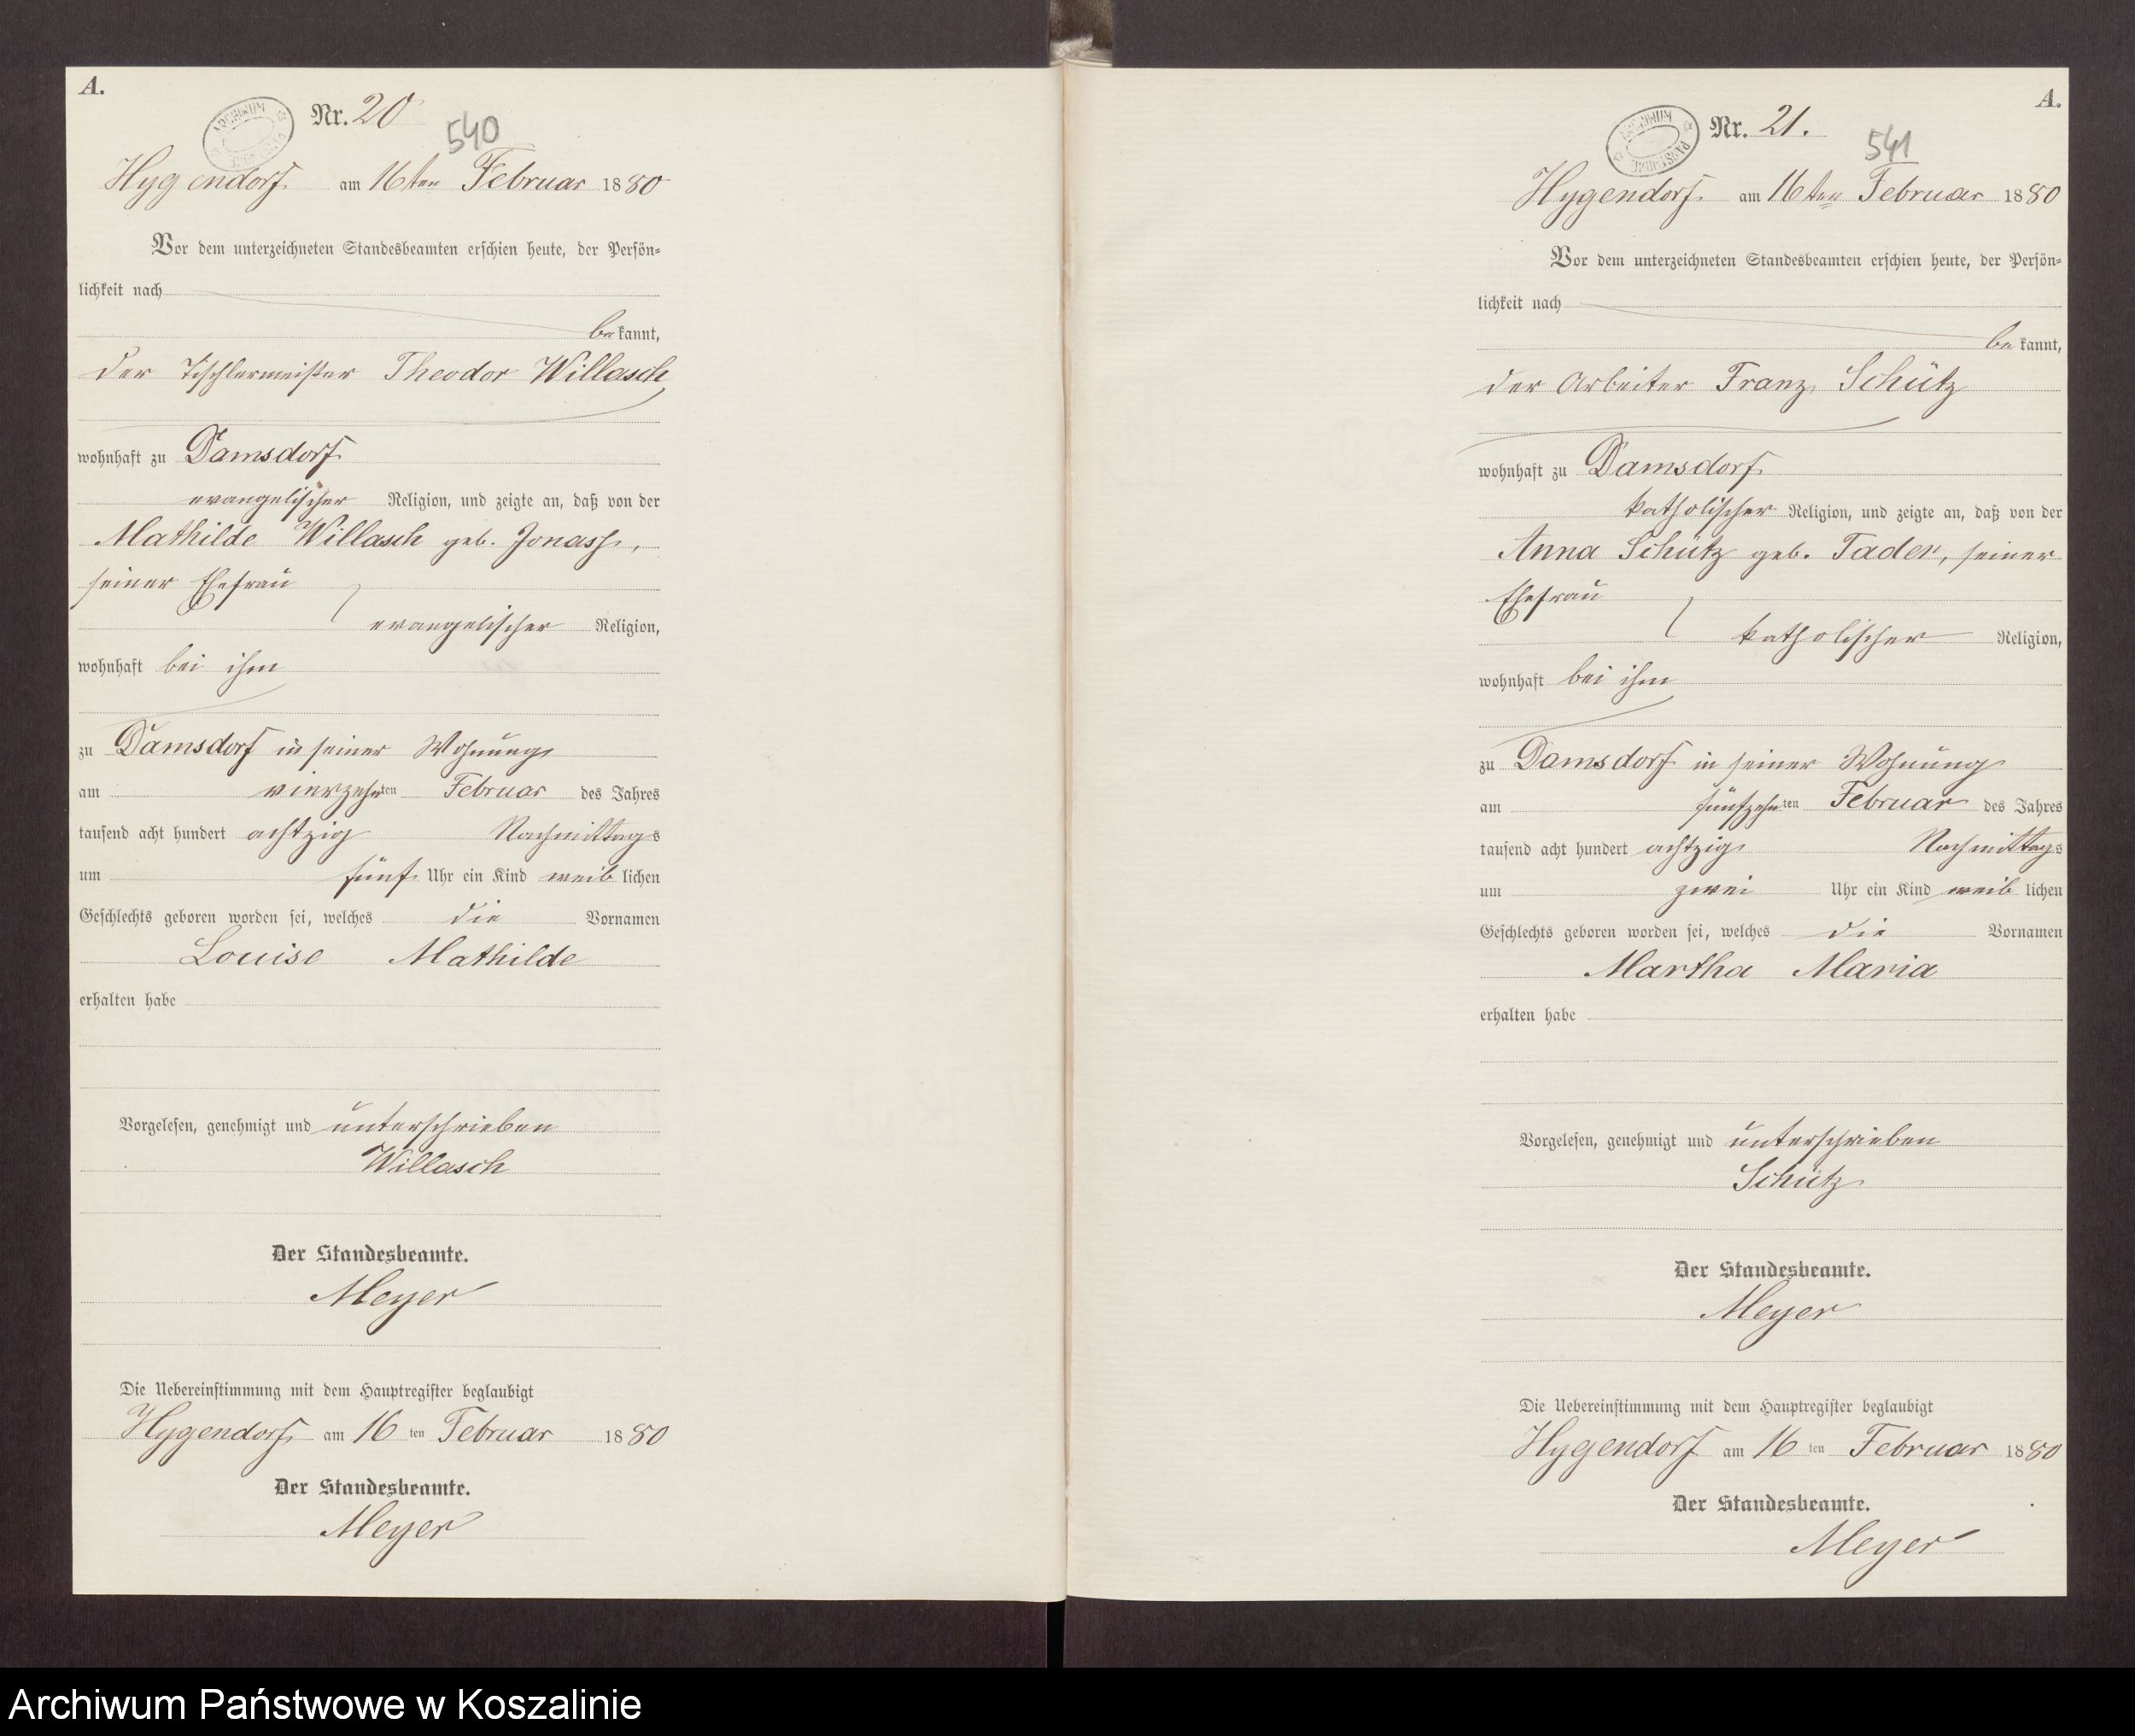 A.
Nr. 20
540
Hygendorf am 16ten Februar 1880
Vor dem unterzeichneten Standesbeamten erschien heute, der Persön=
lichkeit nach
bekannt,
der Tischlermeister Theodor Willasch
wohnhaft zu Damsdorf
evangelischer Religion, und zeigte an, daß von der
Mathilde Willasch geb. Jonass,
seiner Ehefrau
evangelischer Religion,
wohnhaft bei ihm
zu Damsdorf in seiner Wohnung
am vierzehnten Februar des Jahres
tausend acht hundert achtzig Nachmittags
um fünf Uhr ein Kind weiblichen
Geschlechts geboren worden sei, welches die Vornamen
Louise Mathilde
erhalten habe
Vorgelesen, genehmigt und unterschrieben
Willasch
Der Standesbeamte.
Meyer
Die Uebereinstimmung mit dem Hauptregister beglaubigt
Hygendorf am 16ten Februar 1880
Der Standesbeamte.
Meyer
A.
Nr. 21.
541
Hygendorf am 16ten Februar 1880
Vor dem unterzeichneten Standesbeamten erschien heute, der Persön=
lichkeit nach
bekannt,
der Arbeiter Franz Schütz
wohnhaft zu Damsdorf
katholischer Religion, und zeigte an, daß von der
Anna Schütz geb. Tader, seiner
Ehefrau
katholischer Religion,
wohnhaft bei ihm
zu Damsdorf in seiner Wohnung
am fünfzehnten Februar des Jahres
tausend acht hundert achtzig Nachmittags
um zwei Uhr ein Kind weiblichen
Geschlechts geboren worden sei, welches die Vornamen
Martha Maria
erhalten habe
Vorgelesen, genehmigt und unterschrieben
Schütz
Der Standesbeamte.
Meyer
Die Uebereinstimmung mit dem Hauptregister beglaubigt
Hygendorf am 16ten Februar 1880
Der Standesbeamte.
Meyer
Archiwum Państwowe w Koszalinie